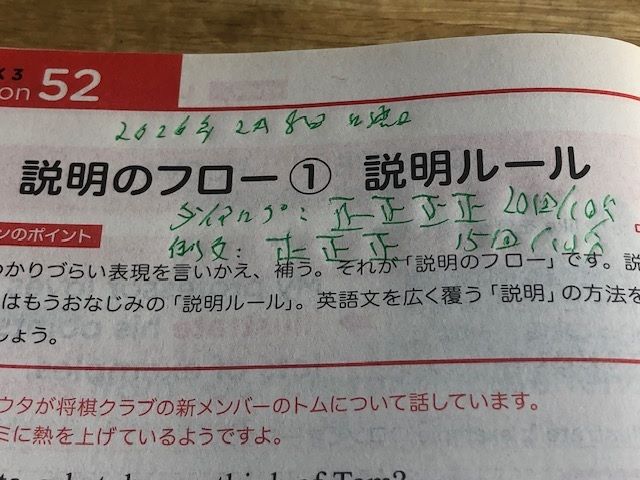 K 3
on 52
2026年 2月8日 日曜日
説明のフロー① 説明ルール
ダイアログ：正正正正 20回/10分
ンのポイント
例文：正正正 15回/14分
わかりづらい表現を言いかえ、補う。それが「説明のフロー」です。説
はもうおなじみの「説明ルール」。英語文を広く覆う「説明」の方法を
しょう。
ウタが将棋クラブの新メンバーのトムについて話しています。
ミに熱を上げているようですよ。
think of Tom?